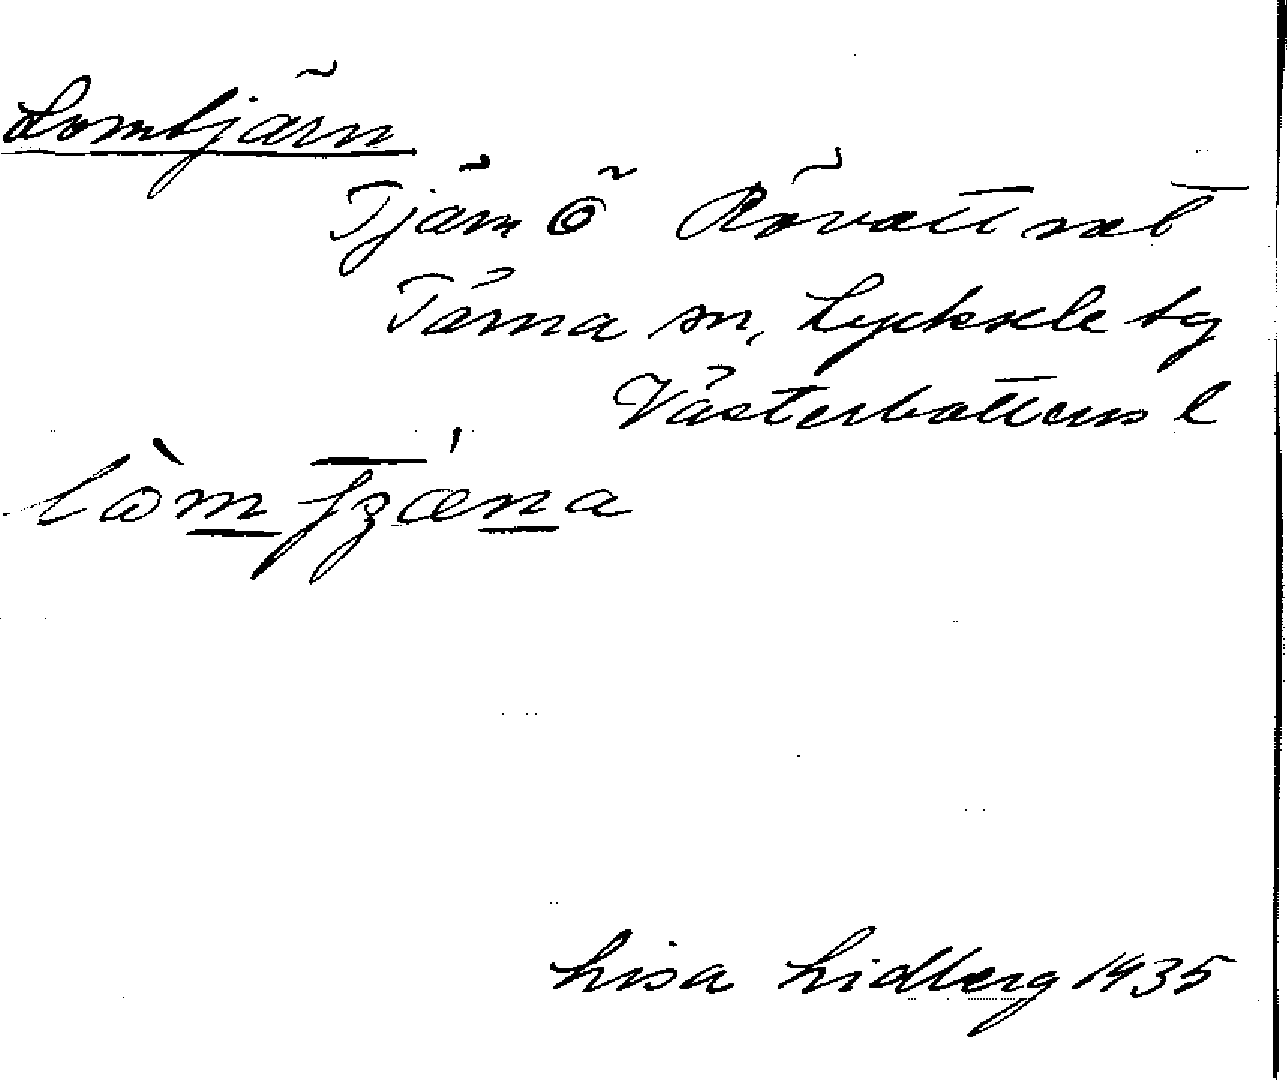 Lomtjärn
Tjärn Ö Rövattnet
Tärna sn, Lycksele tg
Västerbottens l
Lisa Lidberg 1935